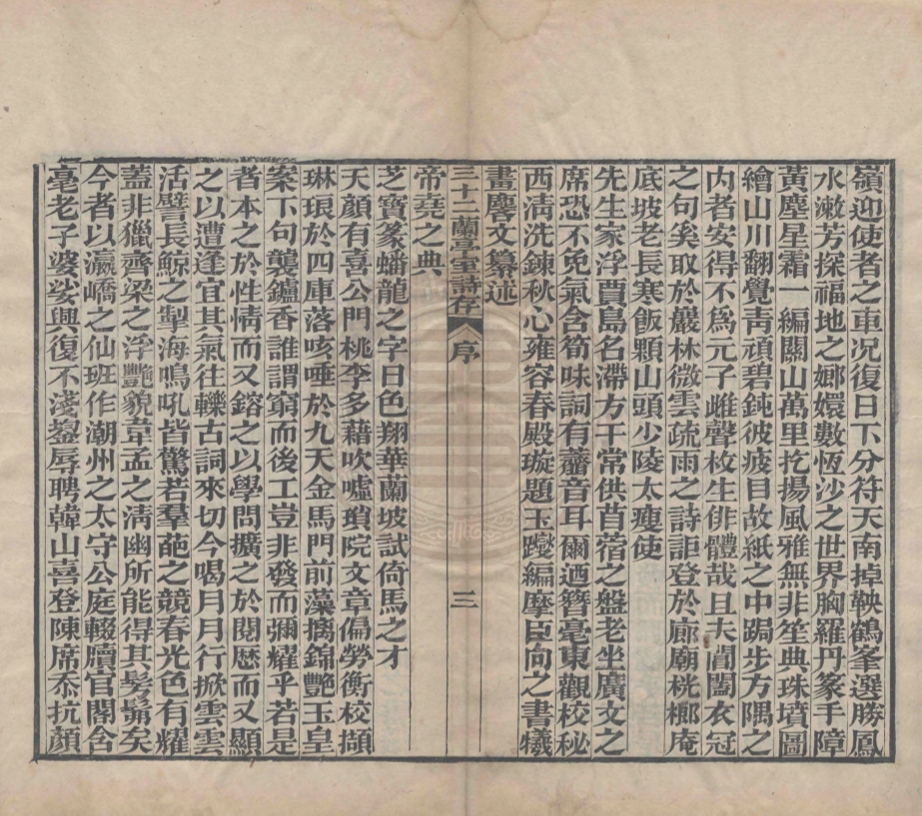 嶺迎使者之車况復日下分符天南掉鞅鶴峯選勝鳳
水漱芳探福地之嫏嬛數恆沙之世界胸羅丹篆手障
黃塵星霜一編關山萬里扢揚風雅無非笙典珠墳圖
繪山川翻覺靑頑碧鈍彼疲目故紙之中跼步方隅之
內者安得不爲元子雌聲枚生俳體哉且夫閶闔衣冠
之句矦取於巖林微雲疏雨之詩詎登於廊廟桄榔庵
底坡老長寒飯顆山頭少陵太瘦使
先生家浮賈島名滯方干常供苜蓿之盤老坐廣文之
席恐不免氣含筍味詞有虀音耳爾迺簪毫東觀校秘
西淸洗鍊秋心雍容春殿璇題玉躞編摩臣向之書犧
畫麐文纂述
三十二蘭亭室詩存 序 三
帝堯之典
芝寶篆蟠龍之字日色翔華蘭坡試倚馬之才
天顏有喜公門桃李多藉吹噓瑣院文章偏勞衡校擷
琳琅於四庫落咳唾於九天金馬門前藻摛錦艷玉皇
案下句襲鑪香誰謂窮而後工豈非發而彌耀乎若是
者本之於性情而又鎔之以學問擴之於閱歷而又顯
之以遭逢宜其氣往轢古詞來切今喝月月行掀雲雲
活譬長鯨之掣海鳴吼皆驚若羣葩之競春光色有耀
蓋非獵齊梁之浮艷貌韋孟之淸幽所能得其髣髴矣
今者以瀛嶠之仙班作潮州之太守公庭輟牘官閣含
毫老子婆娑興復不淺鋆辱聘韓山喜登陳席忝抗顏